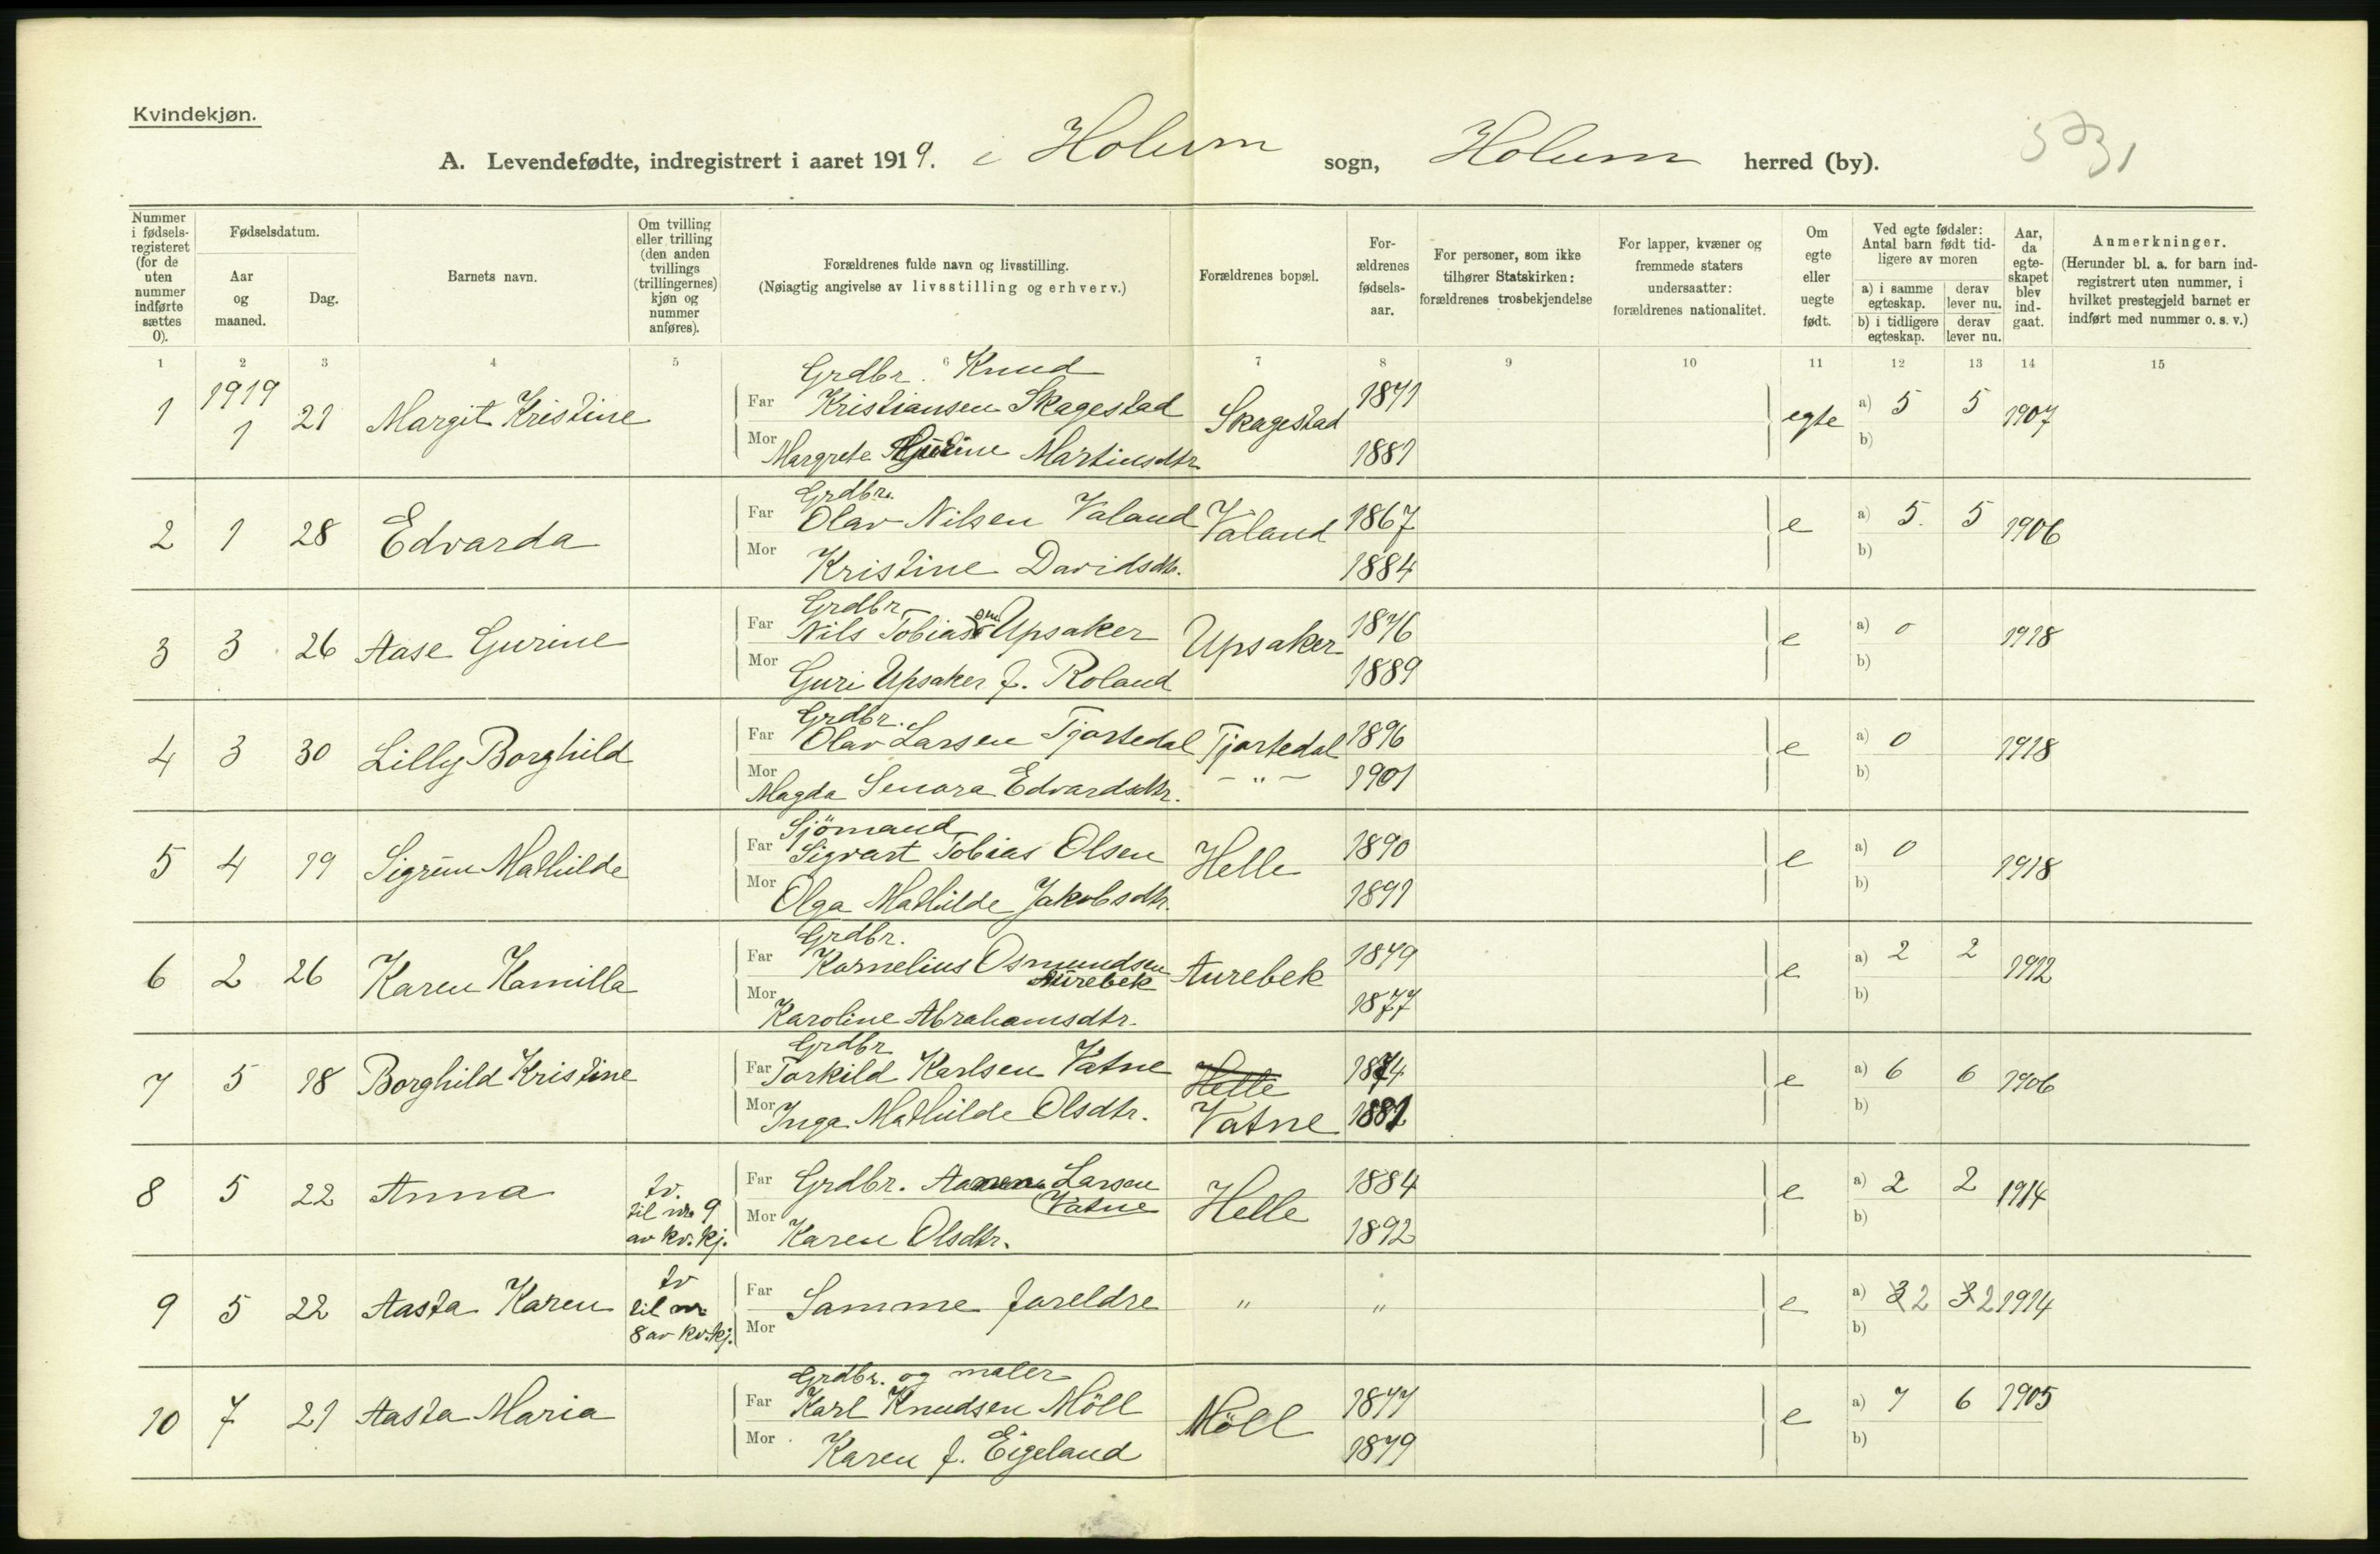 Kvindekjøn.
A. Levendefødte, indregistrert i aaret 1919. i Holum sogn, Holum herred (by).
Nummer i fødselsregisteret (for de uten nummer indførte sættes 0).
Fødselsdatum.
Aar og maaned.
Dag.
Barnets navn.
Om tvilling eller trilling (den anden tvillings (trillingernes) kjøn og nummer anføres).
Forældrenes fulde navn og livsstilling.
(Nøiagtig angivelse av livsstilling og erhverv.)
Forældrenes bopæl.
Forældrenes fødselsaar.
For personer, som ikke tilhører Statskirken: forældrenes trosbekjendelse
For lapper, kvæner og fremmede staters undersaatter: forældrenes nationalitet.
Om egte eller uegte født.
Ved egte fødsler: Antal barn født tidligere av moren
a) i samme egteskap. derav lever nu.
b) i tidligere egteskap. derav lever nu.
Aar, da egteskapet blev indgaat.
Anmerkninger.
(Herunder bl. a. for barn indregistrert uten nummer, i hvilket prestegjeld barnet er indført med nummer o. s. v.)
1 2 3 4 5 6 7 8 9 10 11 12 13 14 15
Grdbr. Knud
1 1919 1 21 Margit Kristine Far Kristiansen Skagestad Skagestad 1871 egte a) 5 5 1907
Mor Margrete Martinsdtr. 1881 b)
Grdbr.
2 1 28 Edvarda Far Olav Nilsen Valand Valand 1867 e a) 5. 5 1906
Mor Kristine Davidsdtr. 1884 b)
Grdbr
3 3 26 Aase Gurine Far Nils Tobiassen Upsaker Upsaker 1876 e a) 0 1918
Mor Guri Upsaker f. Roland 1889 b)
Grdbr.
4 3 30 Lilly Borghild Far Olav Larsen Tjortedal Tjortedal 1896 e a) 0 1918
Mor Magda Senora Edvardsdtr. - " - 1901 b)
Sjömand
5 4 19 Sigrun Mathilde Far Sigvart Tobias Olsen Helle 1890 e a) 0 1918
Mor Olga Mathilde Jakobsdtr. 1891 b)
Grdbr.
6 2 26 Karen Kamilla Far Kornelius Osmundsen Aurebek Aurebek 1879 e a) 2 2 1912
Mor Karoline Abrahamsdtr. 1877 b)
Grdbr
7 5 18 Borghild Kristine Far Torkild Karlsen Vatne Helle 1874 e a) 6 6 1906
Mor Inga Mathilde Olsdtr. Vatne 1881 b)
8 5 22 Anna tv. til nr. 9 av kv. kj. Far Grdbr. Larsen Vatne Helle 1884 e a) 2 2 1914
Mor Karen Olsdtr. 1892 b)
9 5 22 Aasta Karen tv til nr 8 av kv. kj. Far Samme foreldre " " e a) 3 2 3 2 1914
Mor b)
Grdbr. og maler
10 7 21 Aasta Maria Far Karl Knudsen Möll Möll 1877 e a) 7 6 1905
Mor Karen f. Eigeland 1879 b)